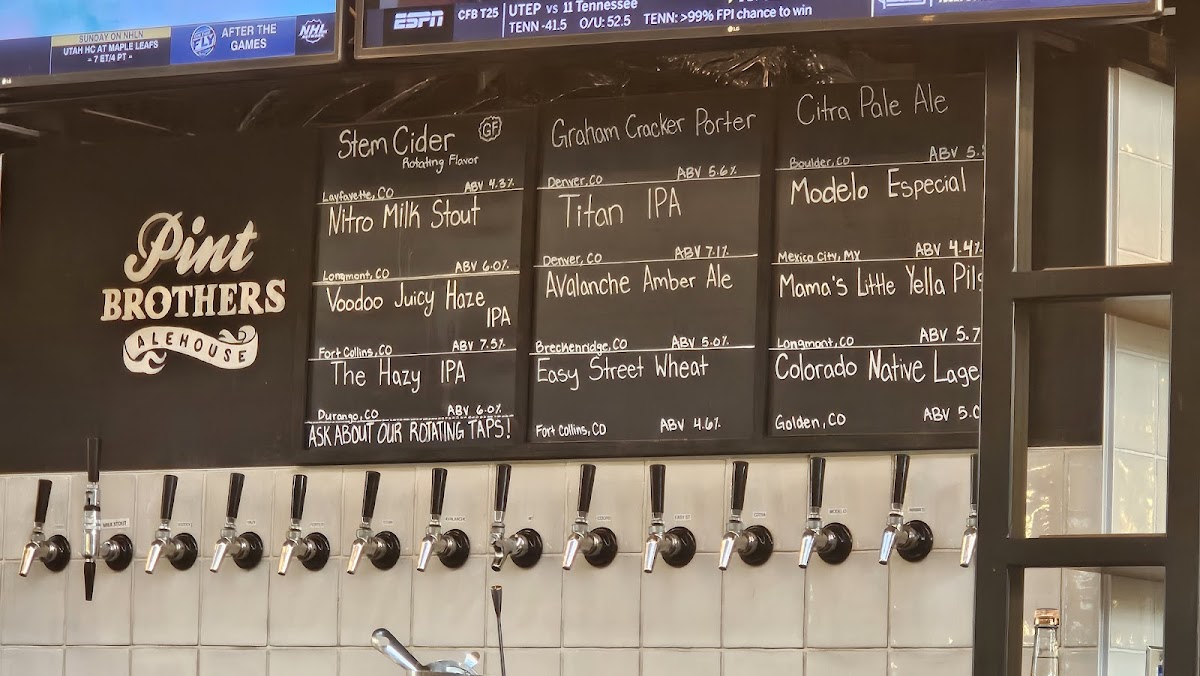 SUNDAY ON NHLN
UTAH HC AT MAPLE LEAFS
7 ET/4 PT
FLY
AFTER THE
GAMES
NHL
ESPN
CFB T25
UTEP vs 11 Tennessee
TENN -41.5 O/U: 52.5 TENN: >99% FPI chance to win
LG
Pint
BROTHERS
ALEHOUSE
Stem Cider GF
Rotating Flavor
Layfayette, CO ABV 4.3%
Nitro Milk Stout
Longmont, CO ABV 6.0%
Voodoo Juicy Haze
IPA
Fort Collins, CO ABV 7.5%
The Hazy IPA
Durango, CO ABV 6.0%
ASK ABOUT OUR ROTATING TAPS!
Graham Cracker Porter
Denver, CO ABV 5.6%
Titan IPA
Denver, CO ABV 7.1%
Avalanche Amber Ale
Breckenridge, CO ABV 5.0%
Easy Street Wheat
Fort Collins, CO ABV 4.6%
Citra Pale Ale
Boulder, CO ABV 5.
Modelo Especial
Mexico City, MX ABV 4.4%
Mama's Little Yella Pils
Longmont, CO ABV 5.7
Colorado Native Lage
Golden, CO ABV 5.0
MILK STOUT
AVALANCHE
MODELO